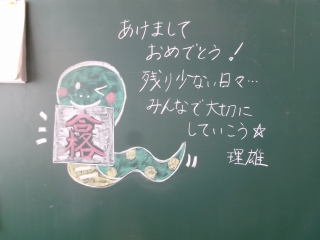 あけまして
おめでとう!
残り少ない日々…
みんなで大切に
していこう☆
理雄
合格